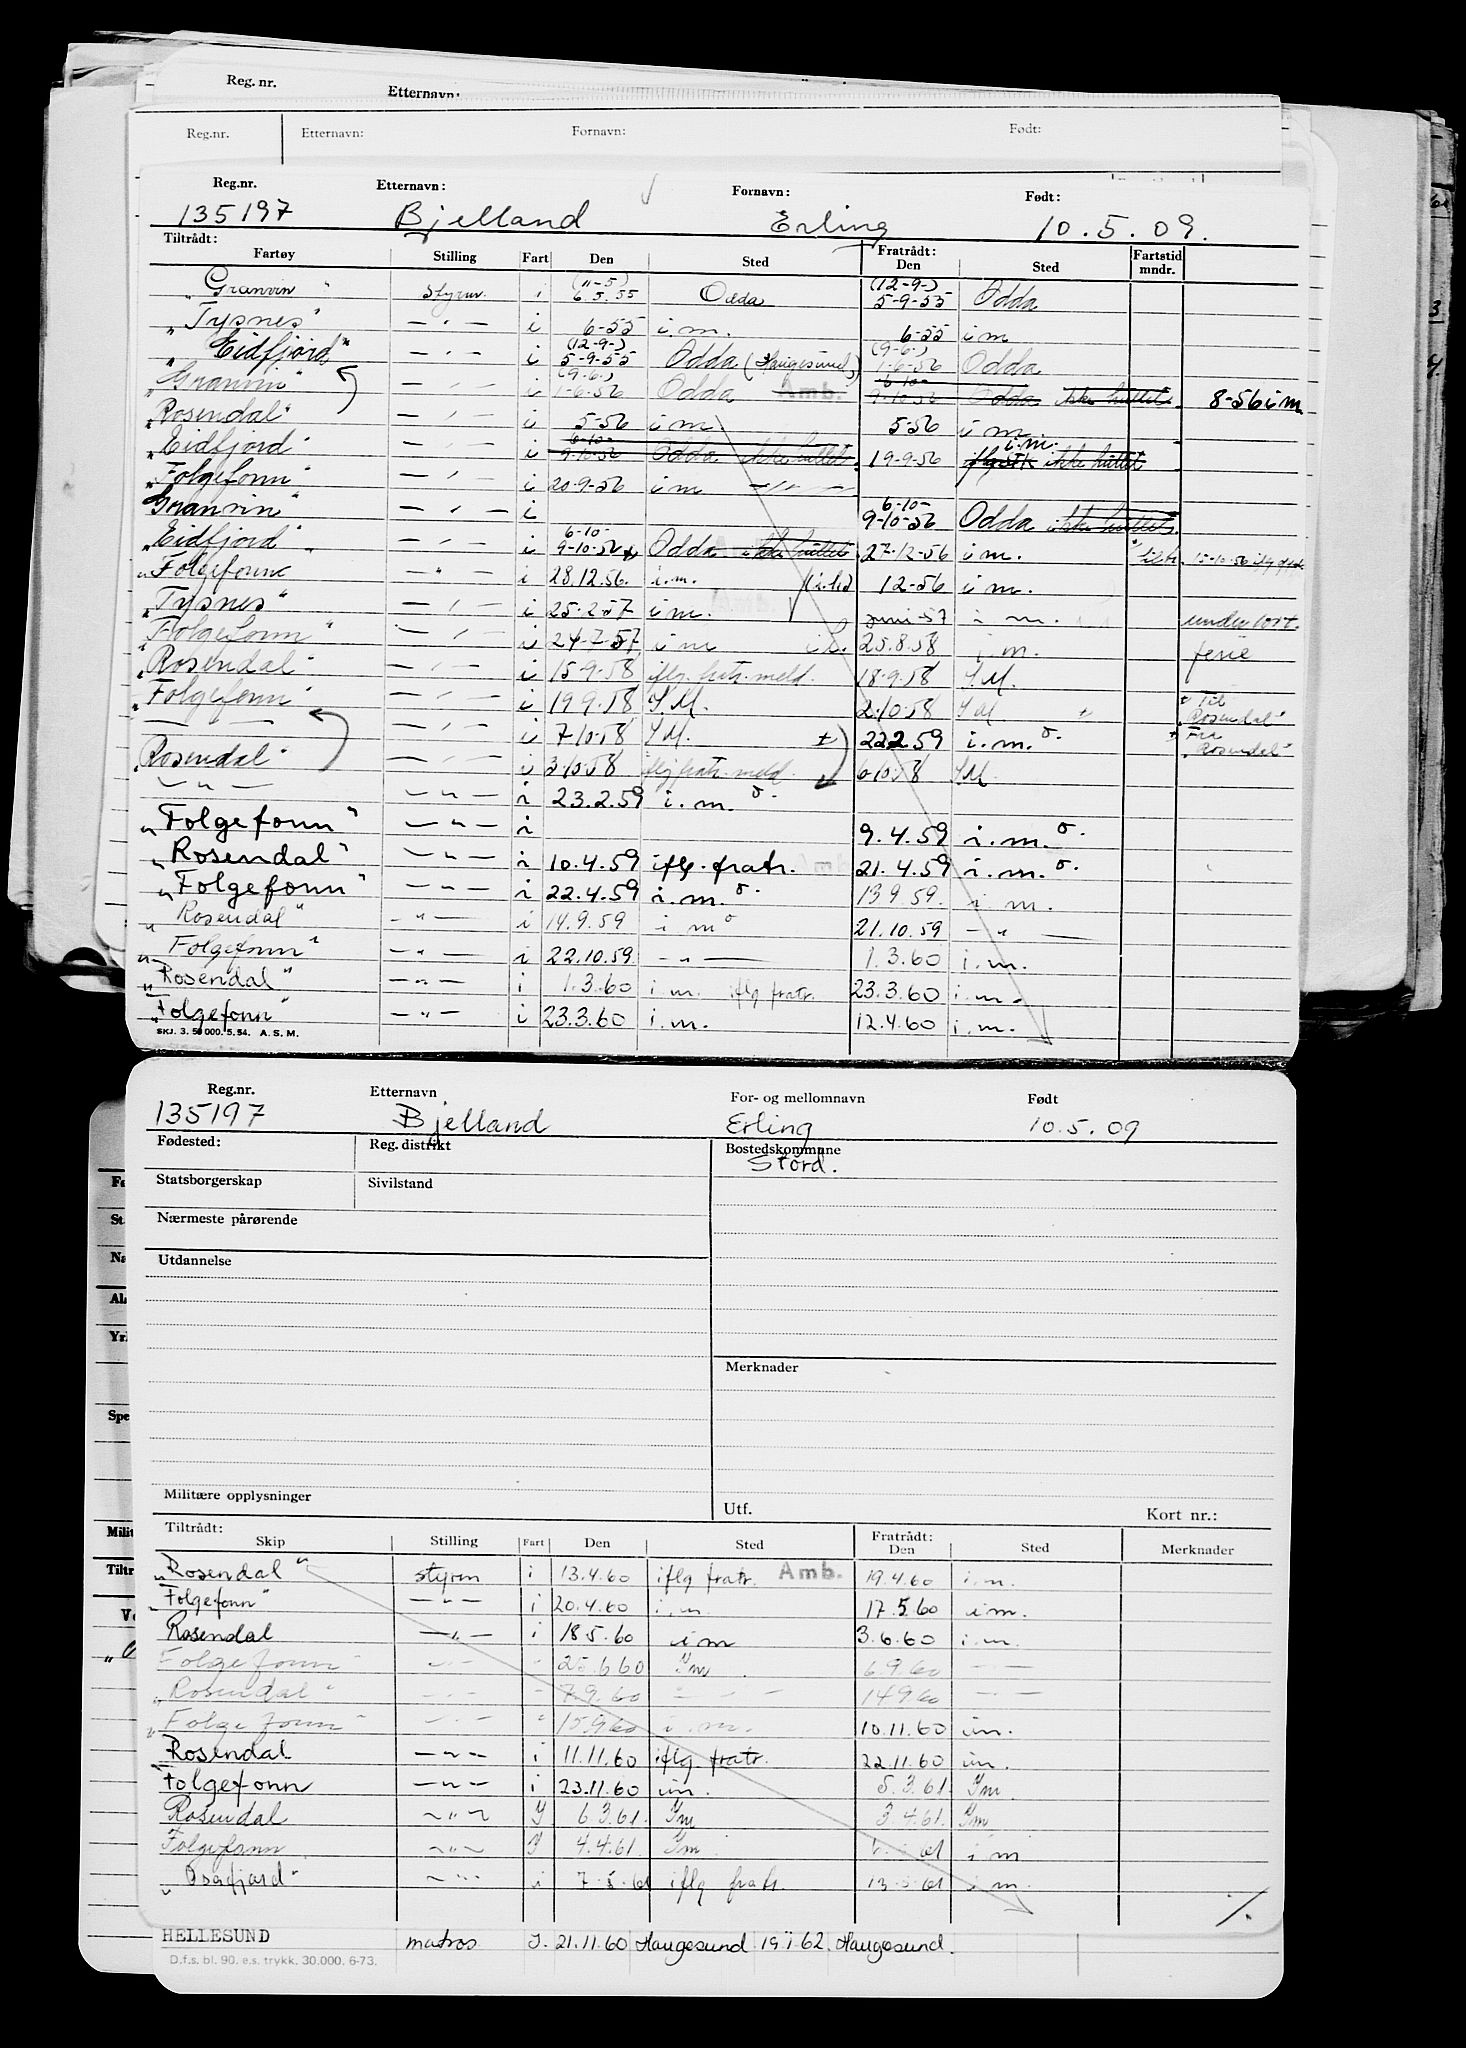 Reg. nr. Etternavn:
Reg.nr. Etternavn: Fornavn: Født:
Reg.nr. Etternavn: Fornavn: Født:
135197 Bjelland Erling 10.5.09.
Tiltrådt: Fratrådt:
Fartøy Stilling Fart Den Sted Den Sted Fartstid mndr.
(11-5) (12-9-)
"Granvin" styrm. i 6.5.55 Odda 5-9-55 Odda
"Tysnes" — " — i 6-55 i m. 6-55 i m
(12-9-) (9-6-)
"Eidfjord" — " — i 5-9-55 Odda (Haugesund) 1-6-56 Odda
(9.6.) 6-10-
"Granvin" — " — i 1-6-56 Odda Amb. 9-10-56 Odda ikke hittet. 8-56 i m
"Rosendal" — " — i 5-56 i m 5-56 i m
6-10- i.m.
"Eidfjord" — " — i 9-10-56 Odda ikke hittet. 19-9-56 ikke hittet
"Folgefonn" — " — i 20-9-56 i m — " —
6-10-
"Granvin" — " — i 9-10-56 Odda ikke hittet.
6-10-
"Eidfjord" — " — i 9-10-56 Odda ikke hittet 27-12-56 i m. 15-10-56
"Folgefonn — " — i 28.12.56. i.m. 12-56 i m.
"Tysnes" — " — i 25-2-57 i m. Amb. juni-57 i m. under tort.
"Folgefonn" — " — i 24-7-57 i m 25.8.58 i.m. ferie
"Rosendal" — " — i 15-9-58 iflg. fratr. meld. 18-9-58 I M.
"Folgefonn" — " — i 19 9.58 I.M. 2-10-58 I M ± ± Til "Rosendal"
— " — — " — i 7-10.58 I M. ± 22.2.59 i.m. o. ± Fra "Rosendal"
"Rosendal" — " — i 3-10.58 iflg fratr. meld. 6-10.58 I M.
— " — — " — i 23.2.59 i.m. o.
"Folgefonn" — " — i 9.4.59 i.m. o.
"Rosendal" — " — i 10.4.59 iflg. fratr. Amb. 21.4.59 i.m. o.
"Folgefonn" — " — i 22.4.59 i.m. o. 13 9.59. i m.
"Rosendal" — " — i 14.9.59 i m o 21.10.59 — " —
"Folgefonn" — " — i 22.10.59 — " — 1.3.60 i.m.
"Rosendal" — " — i 1.3.60 i.m. iflg fratr. 23.3.60 i.m.
"Folgefonn" — " — i 23.3.60 i.m. 12.4.60 i.m.
SKJ. 3. 50 000. 5. 54. A. S. M.
Reg.nr. Etternavn For- og mellomnavn Født
135197 Bjelland Erling 10.5.09
Fødested: Reg. distrikt Bostedskommune
Stord.
Statsborgerskap Sivilstand
Nærmeste pårørende
Utdannelse
Merknader
Militære opplysninger Utf. Kort nr.:
Tiltrådt: Fratrådt:
Skip Stilling Fart Den Sted Den Sted Merknader
"Rosendal" styrm i 13.4.60 iflg fratr. Amb. 19.4.60 i.m.
"Folgefonn" — " — i 20.4.60 i.m 17.5.60 i m.
Rosendal — " — i 18.5.60 i m 3.6.60 i.m.
Folgefonn — " — " 25.6.60 Im. 6.9.60 — " —
"Rosendal" — " — " 7.9.60 — " — 14 9 60 — " —
"Folgefonn" — " — " 15.9.60 i.m. 10.11.60 i m.
Rosendal — " — i 11.11.60 iflg. fratr. 22.11.60 i m.
"Folgefonn — " — i 23.11.60 i m. 5.3.61. Im
Rosendal — " — I 6.3.61. Im 3.4.61. Im
Folgefonn — " — I 4.4.61. Im 61 i m
"Osafjord" — " — i 7-5-61 iflg fratr. 61 i m.
HELLESUND matros I. 21.11.60 Haugesund 19 1 62 Haugesund.
D.f.s. bl. 90. e.s. trykk. 30.000. 6-73.